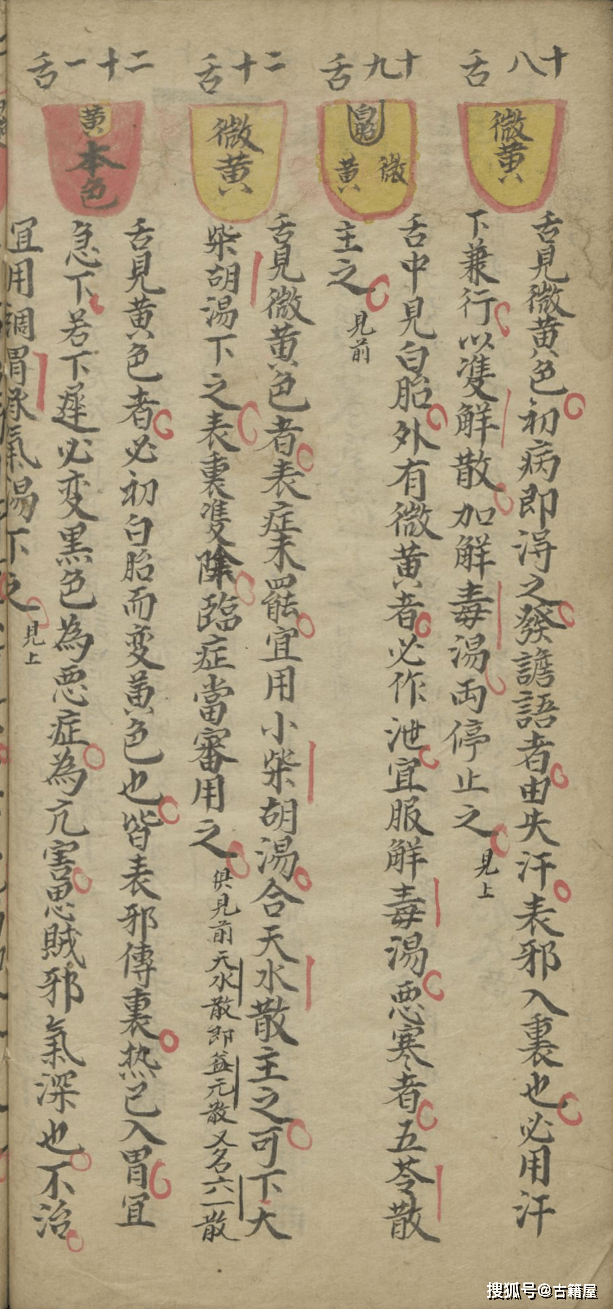 十八舌
微黄
舌見微黄色初病即淂之發譫語者由失汗表邪入裏也必用汗
下兼行以雙解散加解毒湯両停止之見上
十九舌
白胎
微黄
舌中見白胎外有微黄者必作泄宜服解毒湯悪寒者五苓散
主之見前
二十舌
微黄
舌見微黄色者表症未罷宜用小柴胡湯合天水散主之可下大
柴胡湯下之表裏雙除臨症當審用之俱見前天水散即益元散又名六一散
二十一舌
黄
本色
舌見黄色者必初白胎而変黄色也皆表邪傳裏热已入胃宜
急下若下遲必变黒色為悪症為亢害悪賊邪氣深也不治
宜用調胃承氣湯下之見上
搜狐号@古籍屋